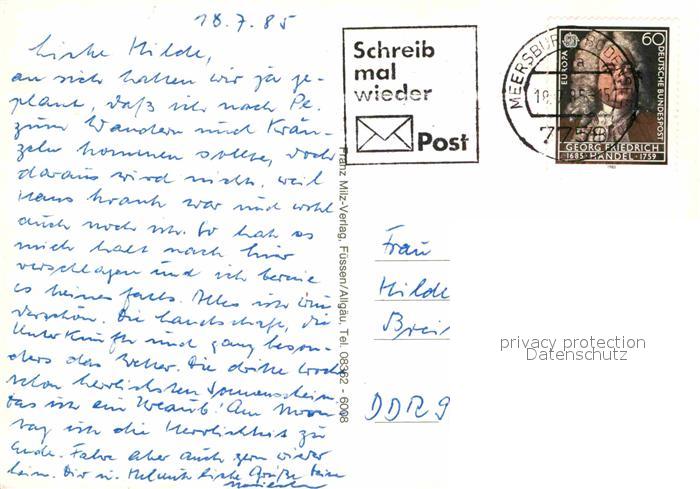 18.7.85
Liebe Hilde,
an sich hatten wir ja ge-
plant, daß ich nach Pe.
zum Wandern und Krän-
zeln kommen sollte, doch
daraus wird nichts, weil
Hans krank war und wohl
auch noch ist. So hat es
mich halt nach hier
verschlagen und ich bereue
es keines falls. Alles ist wun
derschön. Die Landschaft, die
Unterkünfte und ganz beson-
ders das Wetter. Die dritte Woche
schon herrlichsten Sonnenschein.
Das ist ein Urlaub! Am Mon-
tag ist die Herrlichkeit zu
Ende. Fahre aber auch gern wieder
heim. Dir u. Helmut liebe Grüße Deine
Franz Milz-Verlag, Füssen/Allgäu, Tel. 08362 - 6008
Schreib
mal
wieder
Post
MEERSBURG, BODENSEE
a
7758
EUROPA
60
DEUTSCHE BUNDESPOST
GEORG FRIEDRICH
1685 · HÄNDEL · 1759
Frau
Hilde
DDR 9
privacy protection
Datenschutz